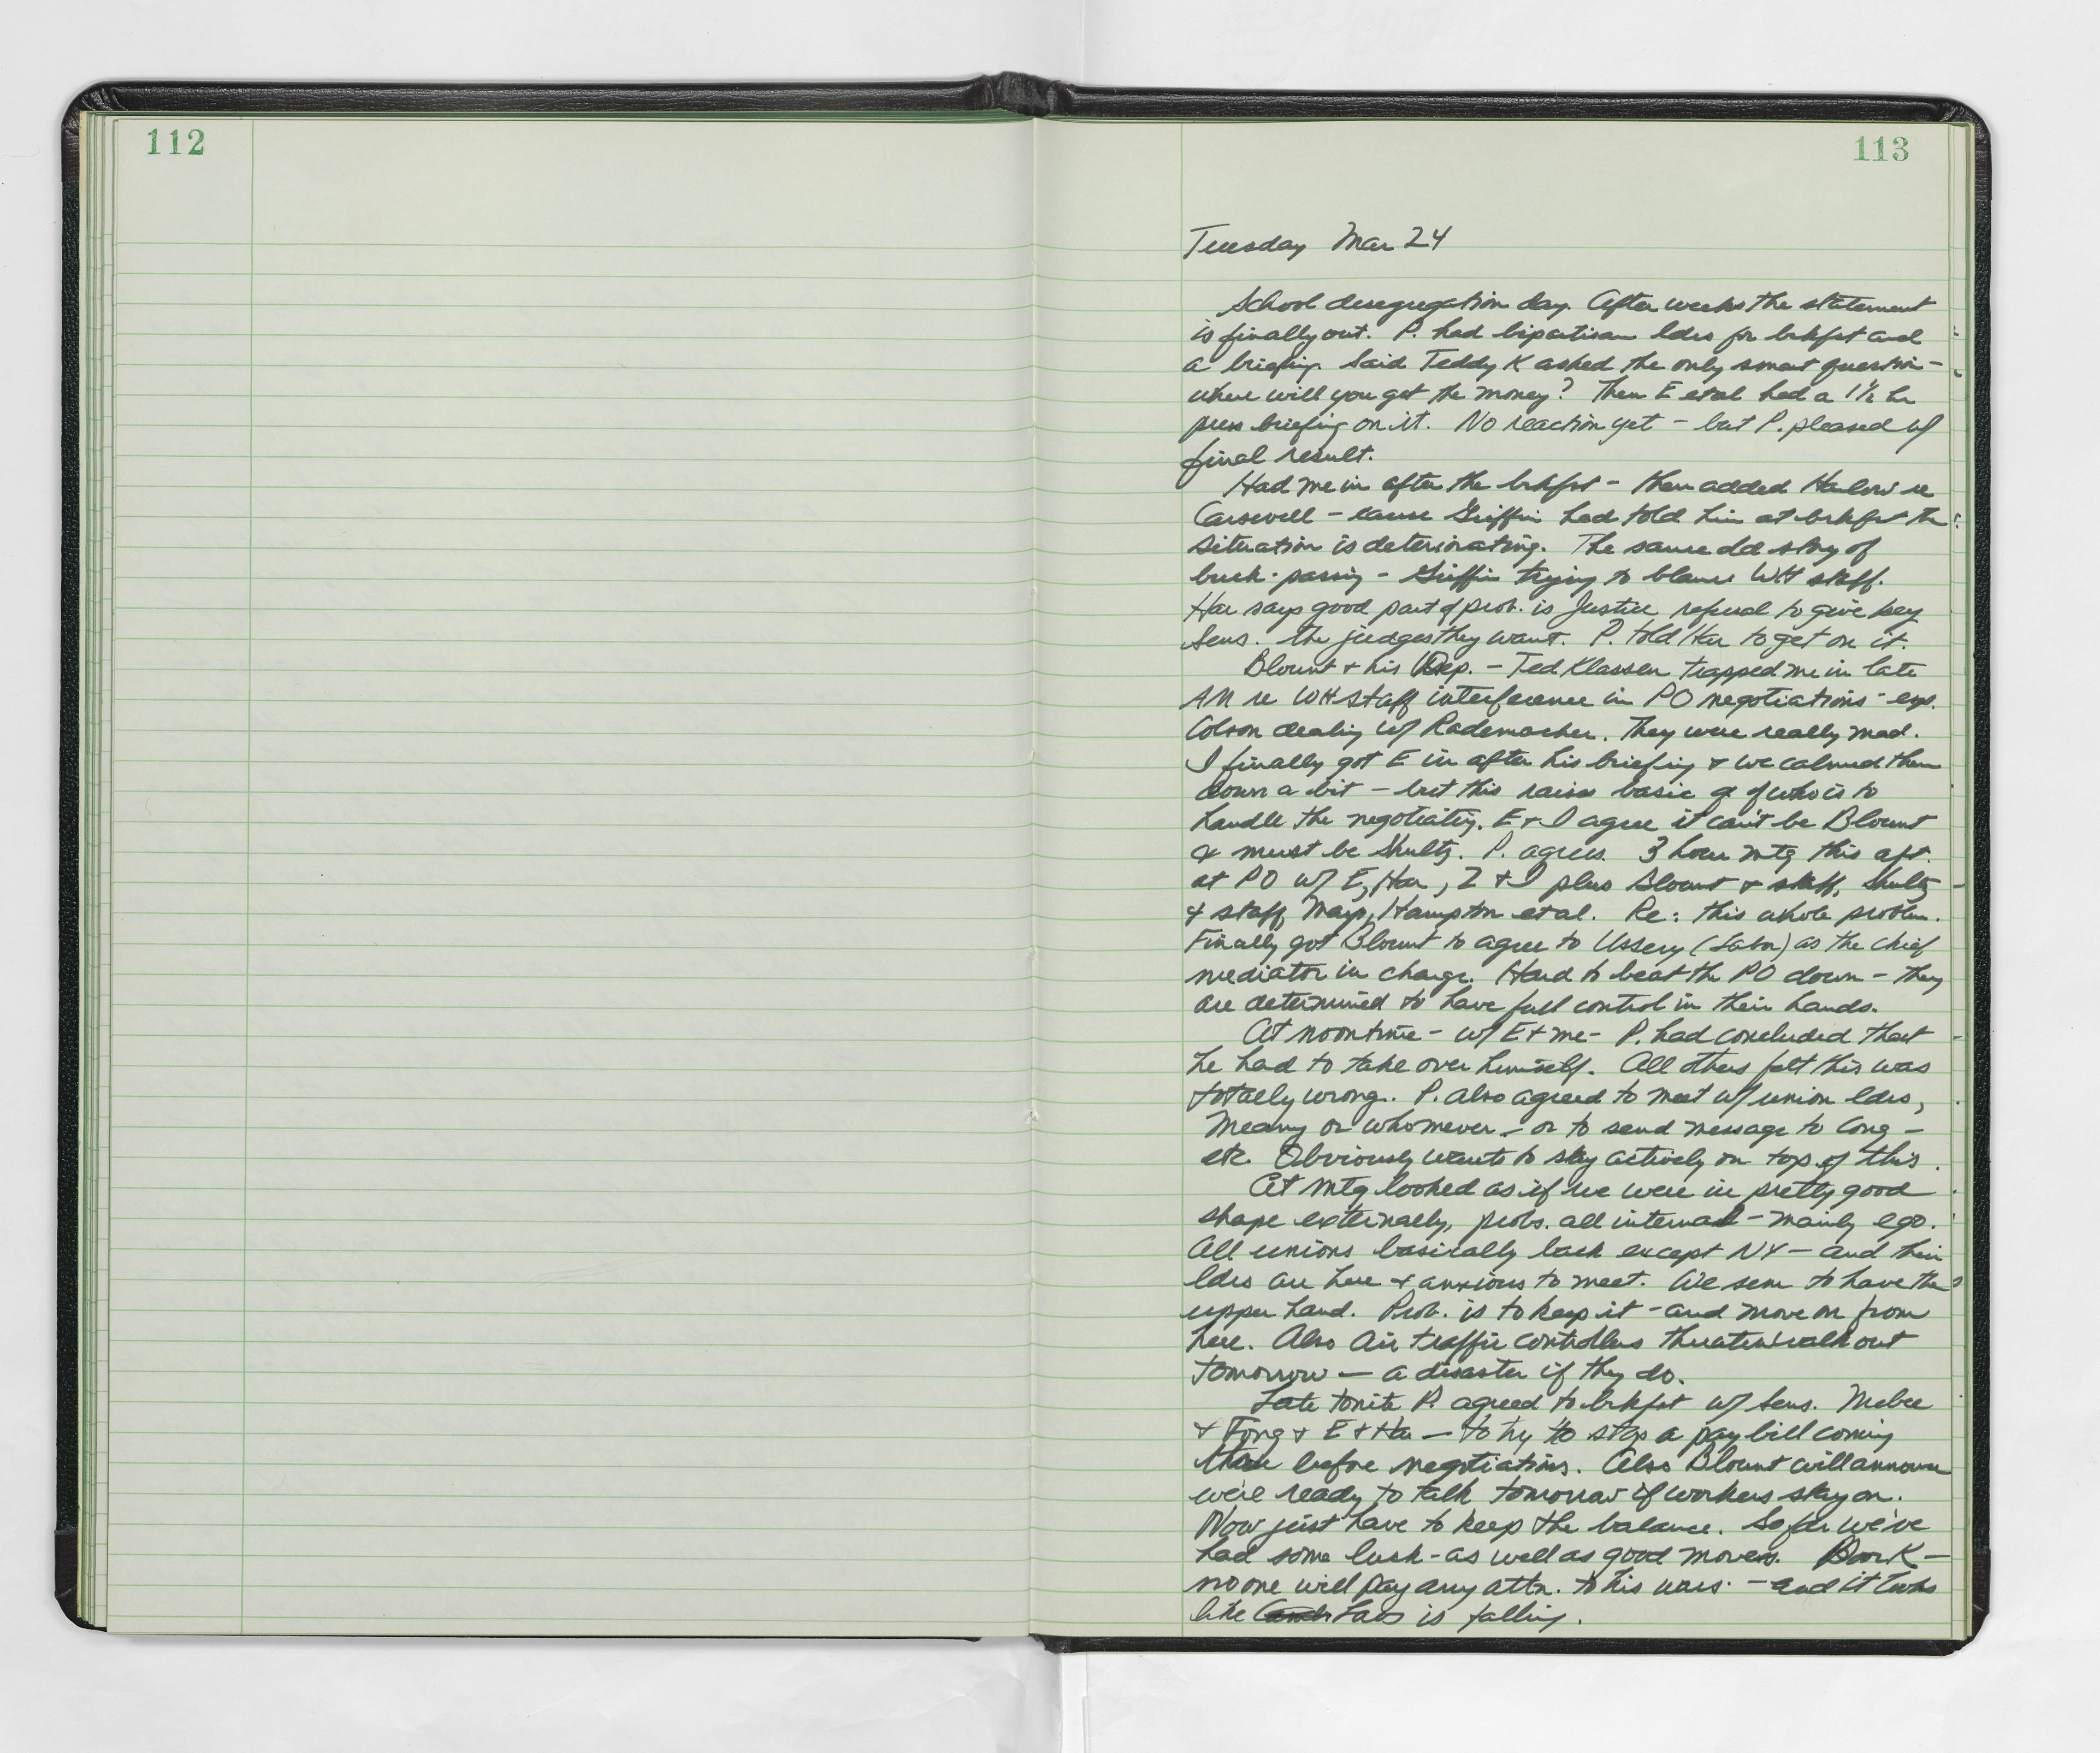 112
113
Tuesday Mar 24
School desegregation day. After weeks the statement
is finally out. P. had bipartisan ldrs for brkfst and
a briefing. Said Teddy K asked the only smart question -
where will you get the money? Then E et al had a 1½ hr
press briefing on it. No reaction yet - but P. pleased w/
final result.
Had me in after the brkfst - then added Harlow re
Carswell - cause Griffin had told him at brkfst the
situation is deteriorating. The same old story of
buck-passing - Griffin trying to blame WH staff.
Har says good part of prob. is Justice refusal to give key
Sens. the judges they want. P. told Har to get on it.
Blount + his Dep. - Ted Klassen trapped me in late
AM re WH staff interference in PO negotiations - esp.
Colson dealing w/ Rademacher. They were really mad.
I finally got E in after his briefing & we calmed them
down a bit - but this raises basic q of who is to
handle the negotiating. E + I agree it can't be Blount
& must be Shultz. P. agrees. 3 hour mtg this aft.
at PO w/ E, Har, Z + I plus Blount & staff, Shultz
& staff, Mayo, Hampton et al. Re: this whole problem.
Finally got Blount to agree to Ussery (Labor) as the chief
mediator in charge. Hard to beat the PO down - they
are determined to have full control in their hands.
At noontime - w/ E + me - P. had concluded that
he had to take over himself. All others felt this was
totally wrong. P. also agreed to meet w/ union ldrs,
Meany or whomever - or to send message to Cong -
etc. Obviously wants to stay actively on top of this.
At mtg looked as if we were in pretty good
shape externally, probs. all internal - mainly ego.
All unions basically back except NY - and their
ldrs are here + anxious to meet. We seem to have the
upper hand. Prob. is to keep it - and move on from
here. Also Air traffic controllers threaten walk out
tomorrow - a disaster if they do.
Late tonite P. agreed to brkfst w/ Sens. McGee
& Fong + E + Har - to try to stop a pay bill coming
before negotiations. Also Blount will announce
we're ready to talk tomorrow if workers stay on.
Now just have to keep the balance. So far we've
had some luck - as well as good moves. Poor K -
no one will pay any attn. to his wars - and it looks
like Laos is falling.